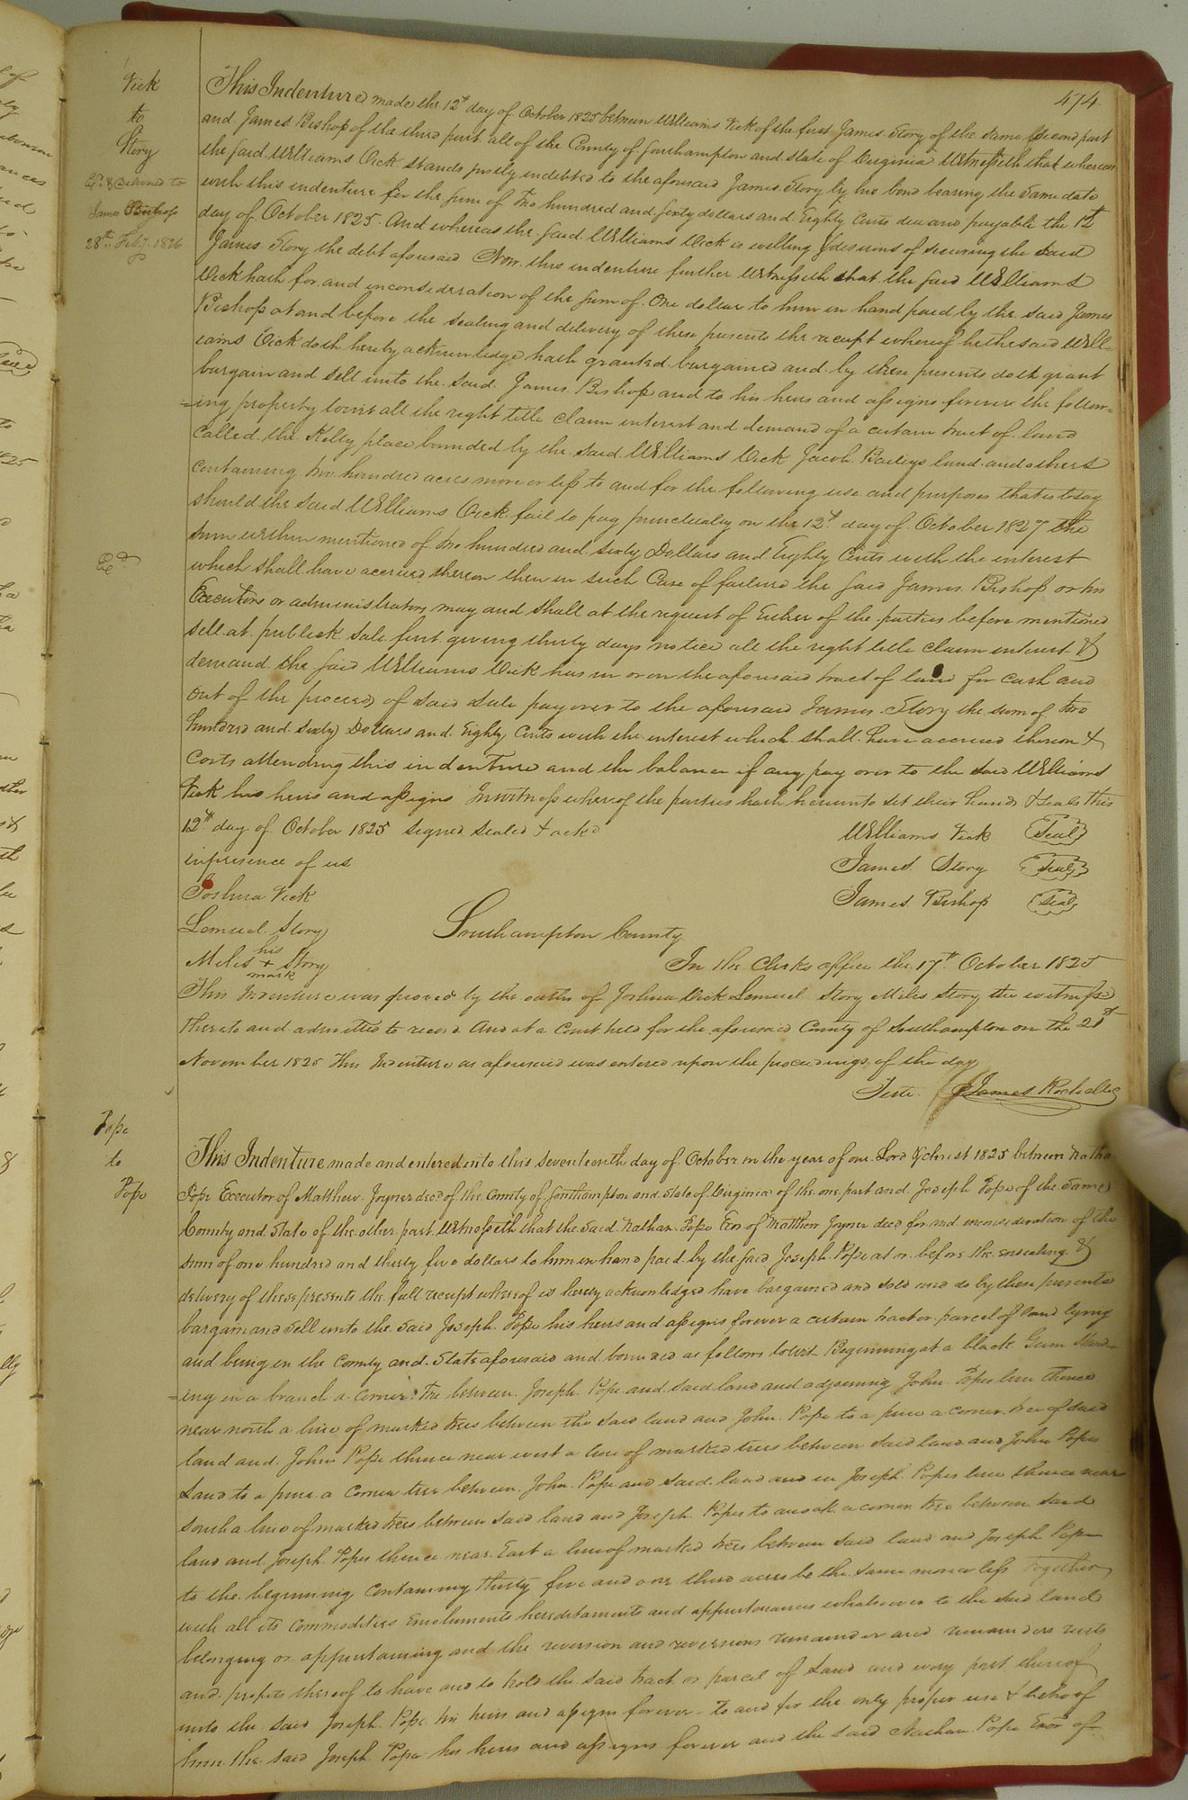 474
Vick
to
Story
Ex.d & Delivered to
James Bishop
28th Feby. 1826
This Indenture made the 12th day of October 1825 between Williams Vick of the first James Story of the same second part
and James Bishop of the third part all of the County of Southampton and State of Virginia Witnesseth that whereas
the said Williams Vick stands justly indebted to the aforesaid James Story by his bond bearing the same date
with this indenture for the sum of two hundred and sixty dollars and Eighty Cents due and payable the 12th
day of October 1825. And whereas the said Williams Vick is willing & desirous of securing the said
James Story the debt aforesaid Now this indenture further Witnesseth that the said Williams
Vick hath for and in consideration of the sum of One dollar to him in hand paid by the said James
Bishop at and before the sealing and delivery of these presents the receipt whereof he the said Will-
iams Vick doth hereby acknowledge hath granted bargained and by these presents doth grant
bargain and sell unto the said James Bishop and to his heirs and assigns forever the follow-
=ing property towit all the right title claim interest and demand of a certain tract of land
Called the Kelly place bounded by the said Williams Vick Jacob Baileys land and others
containing two hundred acres more or less to and for the following use and purposes that is to say
should the said Williams Vick fail to pay punctually on the 12th day of October 1827 the
sum within mentioned of two hundred and sixty Dollars and Eighty Cents with the interest
which shall have accrued thereon then in such Case of failure the said James Bishop or his
Ex.d
Executors or administrators may and shall at the request of Either of the parties before mentioned
sell at publick sale first giving thirty days notice all the right title claim interest &
demand the said Williams Vick has in or on the aforesaid tract of land for cash and
out of the proceeds of said sale pay over to the aforesaid James Story the sum of two
hundred and sixty Dollars and Eighty Cents with the interest which shall have accrued thereon &
Costs attending this indenture and the balance if any pay over to the said Williams
Vick his heirs and assigns In witness whereof the parties hath hereunto set their hands & seals this
12th day of October 1825 signed sealed & ackd
Williams Vick (Seal)
in presence of us
James Story (Seal)
Joshua Vick
James Bishop (Seal)
Lemuel Story
Southampton County
his
Miles + Story
mark
In the Clerks office the 17th October 1825
This Indenture was proved by the oaths of Joshua Vick Lemuel Story Miles Story the witnesses
thereto and admitted to record And at a Court held for the aforesaid County of Southampton on the 21st
November 1825 This Indenture as aforesaid was entered upon the proceedings of the day
Teste. James Rochelle
Pope
to
Pope
This Indenture made and entered into this seventeenth day of October in the year of our Lord Christ 1825 between Nathan
Pope Executor of Matthew Joyner decd of the County of Southampton and State of Virginia of the one part and Joseph Pope of the same
County and State of the other part Witnesseth that the said Nathan Pope Exr of Matthew Joyner decd for and in consideration of the
sum of one hundred and thirty five dollars to him in hand paid by the said Joseph Pope at or before the ensealing &
delivery of these presents the full receipt whereof is hereby acknowledged have bargained and sold and do by these presents
bargain and sell unto the said Joseph Pope his heirs and assigns forever a certain tract or parcel of land lying
and being in the County and State aforesaid and bounded as follows towit Beginning at a black Gum stand-
=ing in a branch a Corner Tree between Joseph Pope and said land and adjoining John Popes line thence
near north a line of marked trees between the said land and John Pope to a pine a corner tree of said
land and John Pope thence near west a line of marked trees between said land and John Popes
Land to a pine a Corner tree between John Pope and said land and in Joseph Popes line thence near
south a line of marked trees between said land and Joseph Popes to an oak a corner tree between said
land and Joseph Popes thence near East a line of marked trees between said land and Joseph Pope
to the beginning Containing thirty five and one third acres be the same more or less together
with all its Commodities Emoluments hereditaments and appurtenances whatsoever to the said land
belonging or appertaining and the reversion and reversions remainder and remainders rents
and profits thereof to have and to hold the said tract or parcel of land and every part thereof
unto the said Joseph Pope his heirs and assigns forever to and for the only proper use & behoof of
him the said Joseph Pope his heirs and assigns forever and the said Nathan Pope Exor of